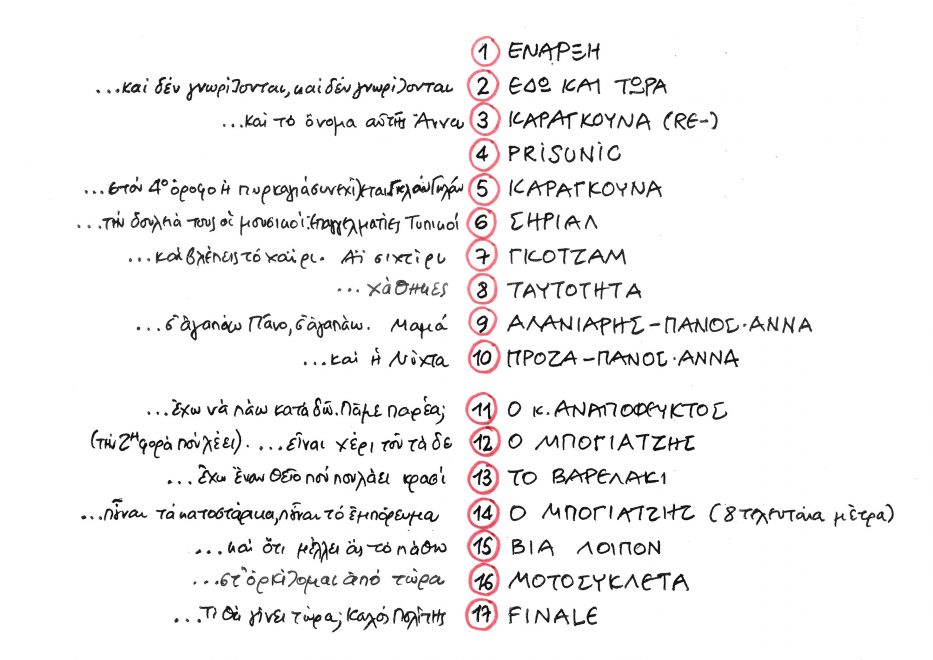 1 ΕΝΑΡΞΗ
...καὶ δέν γνωρίζονται, καὶ δέν γνωρίζονται 2 ΕΔΩ ΚΑΙ ΤΩΡΑ
...καὶ τὸ ὄνομα αὐτῆς Ἄννα 3 ΚΑΡΑΓΚΟΥΝΑ (RE-)
4 PRISUNIC
...στὸν 4ο ὄροφο ἡ πυρκαγιὰ συνεχίζεται 5 ΚΑΡΑΓΚΟΥΝΑ
...τὴν δουλειά τους οἱ μουσικοί. Ἐπαγγελματίες Τυπικοί 6 ΣΗΡΙΑΛ
...καὶ βλέπεις τὸ χαΐρι. Ἀΐ σιχτίρι 7 ΓΚΟΤΖΑΜ
...χάθηκες 8 ΤΑΥΤΟΤΗΤΑ
...σ' ἀγαπάω Πάνο, σ' ἀγαπάω. Μαμά 9 ΑΛΑΝΙΑΡΗΣ-ΠΑΝΟΣ·ΑΝΝΑ
...καὶ ἡ Νύχτα 10 ΠΡΟΖΑ-ΠΑΝΟΣ·ΑΝΝΑ
...ἔχω νὰ πάω κατὰ δῶ. Πᾶμε παρέα; 11 Ο κ. ΑΝΑΠΟΦΕΥΚΤΟΣ
(τὴν 2η φορὰ ποὺ λέει). ...εἶναι χέρι τοῦτα δε 12 Ο ΜΠΟΓΙΑΤΖΗΣ
...ἔχω ἕναν θεῖο ποὺ πουλάει κρασί 13 ΤΟ ΒΑΡΕΛΑΚΙ
...ποῦναι τὰ κατοστάρικα, ποῦναι τὸ ἐμπόρευμα 14 Ο ΜΠΟΓΙΑΤΖΗΣ (8 τελευταία μέτρα)
...καὶ ὅτι μέλλει ἂς τὸ πάθω 15 ΒΙΑ ΛΟΙΠΟΝ
...στ' ὁρκίζομαι ἀπὸ τώρα 16 ΜΟΤΟΣΥΚΛΕΤΑ
...Τι θὰ γίνει τώρα; Καλός Πολίτης 17 FINALE